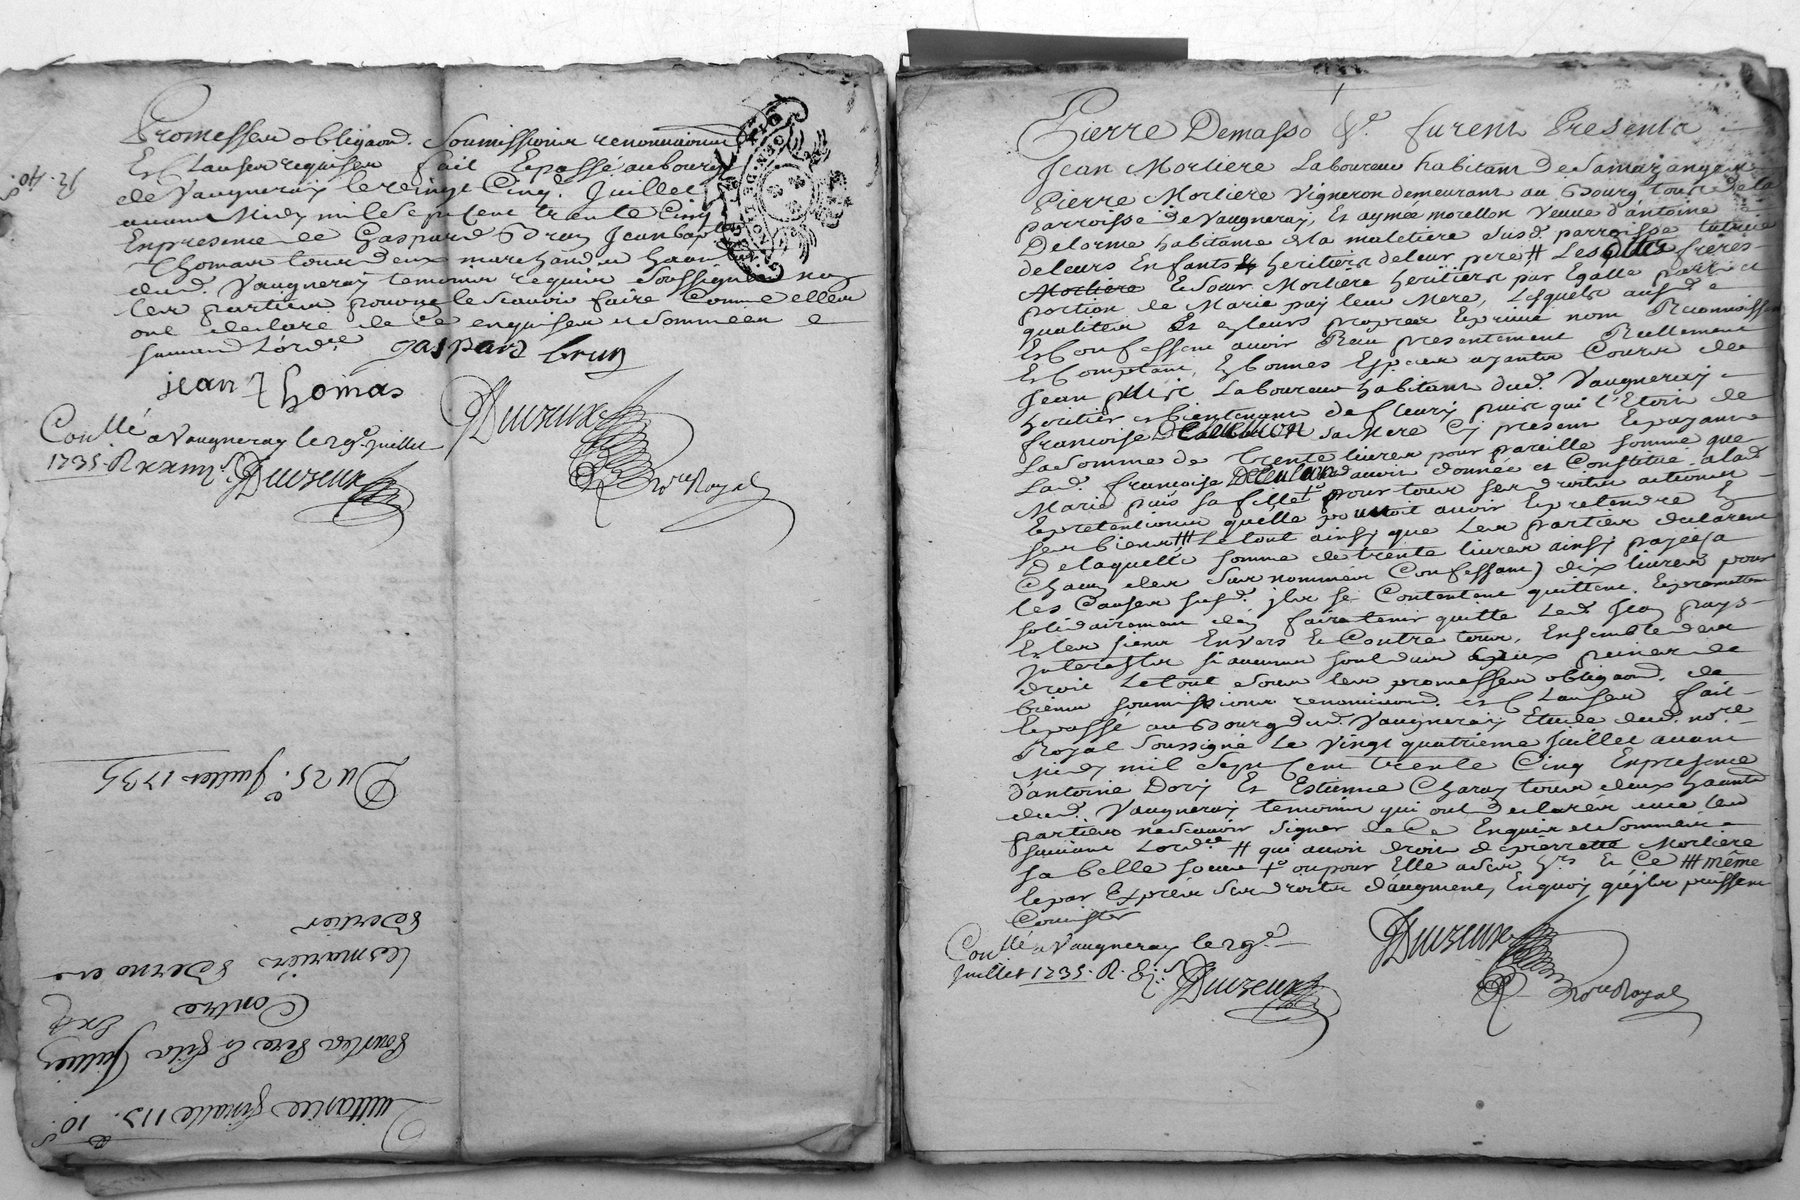 Promesses obligaon. Soumissions renonciaons
Et Clauses requises fait Et passé au bourg
de Vaugneray le vingt Cinqe. Juillet
avant Midy mil sept cent trente Cinq
En presence de Gaspard Brun Jean bap
Thomas tous deux marchands haans
dud. Vaugneray temoins requis soussignés non
les parties pour ne le scavoir faire Comme elles
ont declaré de Ce enquises et sommées
suivant L'ordce
gaspard brun
jean Thomas
Conllé a Vaugneray le 29e juillet
1735. R
Duvzeux
Duvzeux
Nore Royal
R. 40.
Du 25e. Juillet 1735
Quittance finalle 112. 10s
Pour les Pere & fils Jullien
Contre
Les mariés
Pierre Demasso &c. furent Presents
Jean Morliere Laboureur habitant de
Pierre Morliere Vigneron demeurant au Bourg tous de la
parroisse de Vaugneray, Et aymée morellon Veuve d'antoine
Delorme habitante de la maletiere susd. parroisse tutrice
de leurs Enfants & heritiers de leur pere # Les dits freres
Morliere Et soeur Morliere heritiers par Egalle part et
portion de Marie puy leur Mere, Lesquels ausd.
qualités Et En leurs propres Et privé nom Reconnoissent
Et Confessent avoir Reçu presentement Reellement
Et Comptant, En bonnes Especes ayants Cours de
Jean puis Laboureur habitant dud. Vaugneray
heritier et bientenant de fleury puis qui l'Etoit de
francoise sa Mere Cy present Et payant
La somme de trente livres pour pareille somme que
Lad. francoise avoir donnée et Constitué a lad.
Marie puis sa fille pour tous ses droits actions
Et pretentions quelle pouvoit avoir Et pretendre En
ses biens Le tout ainsy que Les parties declarent
De laquelle somme de trente livres ainsy payée a
Chacun des sus nommés Confessant) dix livres pour
les Causes susd. ils se Contentent quittent, Et promettent
solidairement d'en faire tenir quitte led. Jean puys
Et les siens Envers Et Contre tous, Ensemble des
Interests si aucuns sont dus a peines de
droit Le tout sous leurs promesses obligaon. de
biens soumissions renonciaons. et Clauses fait
Et passé au Bourg dud. Vaugneray Etude dud. nore.
Royal soussigné Le Vingt quatrieme Juillet avant
Midy mil sept cent trente Cinq En presence
d'antoine Dory Et Estienne Charay tous deux haants
dud. Vaugneray temoins qui ont declarés avec les
parties ne scavoir signer de Ce Enquis et sommés
suivant L'ordce # qui avoit droit de pierrette Morliere
sa belle soeur ou pour Elle a ses hrs Et Ce même
Et par Exprés les droits d'augment, En quoy qu'jls puissent
Consister
Conllé a Vaugneray le 29e
Juillet 1735. R.
Duvzeux
Duvzeux
Nore Royal